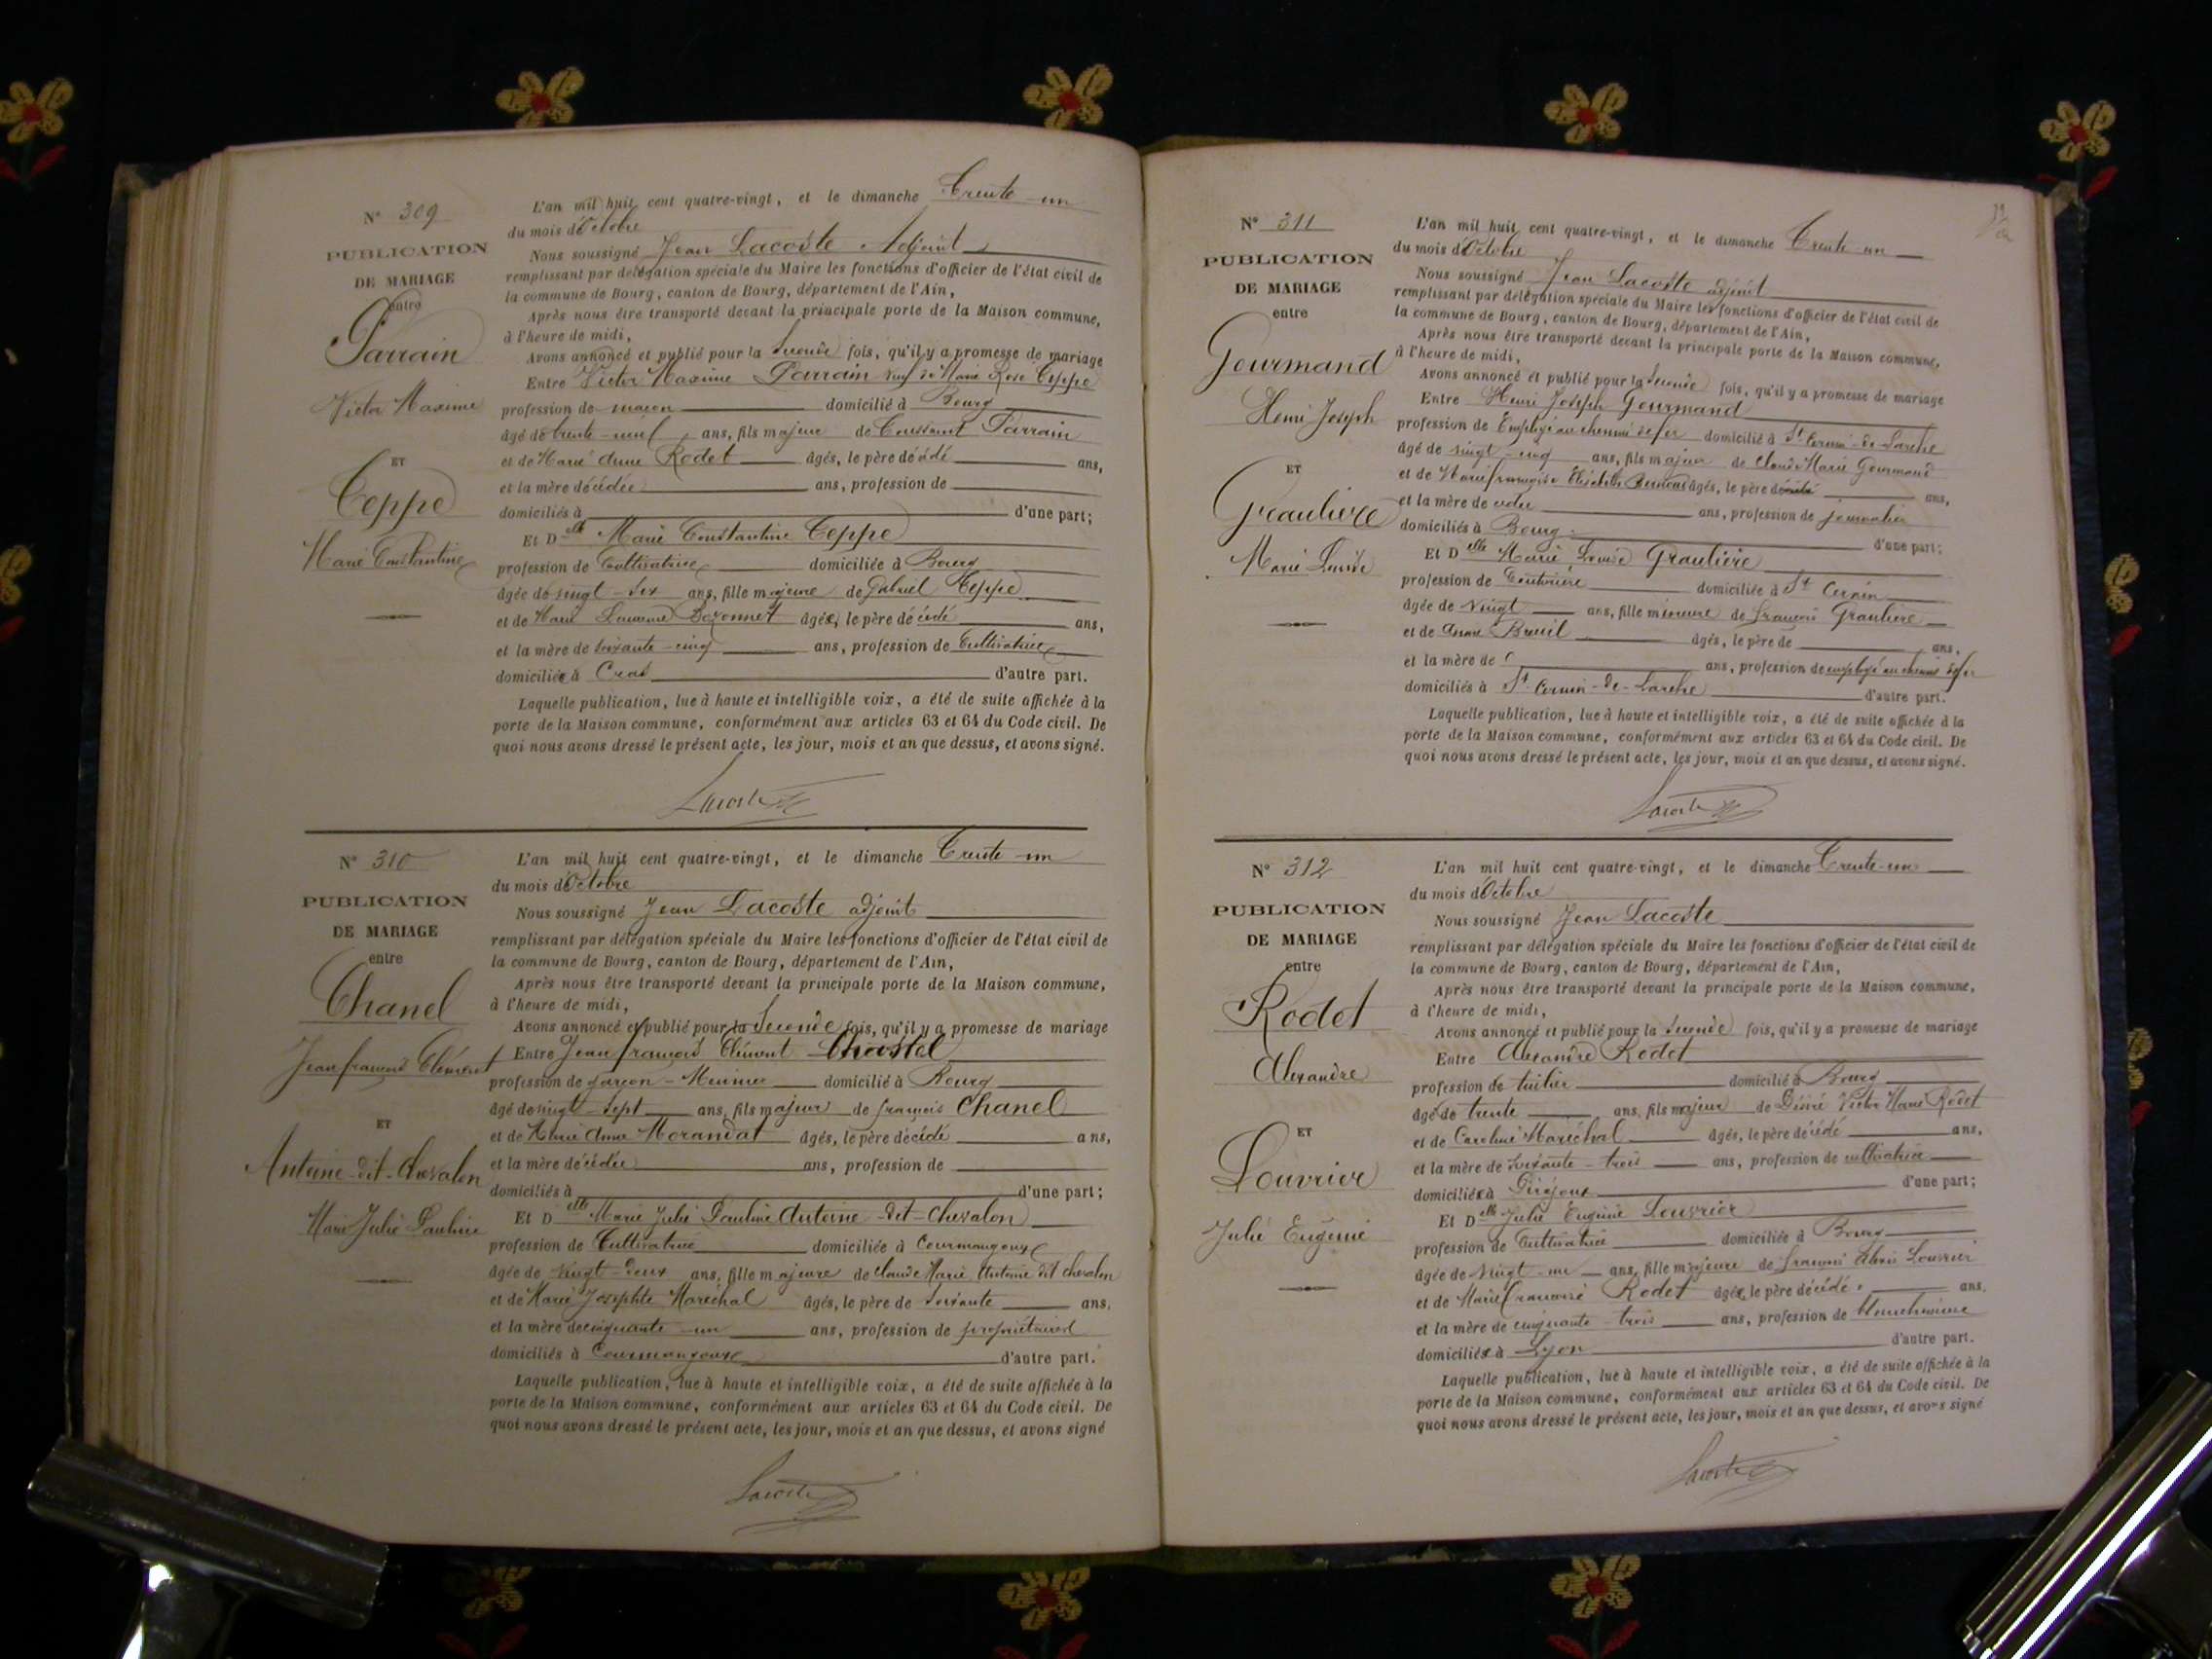 N° 309
PUBLICATION
DE MARIAGE
entre
Parrain
Victor Maxime
ET
Teppe
Marie Constantine
L'an mil huit cent quatre-vingt, et le dimanche Trente-un
du mois d'Octobre
Nous soussigné Jean Lacoste Adjoint
remplissant par délégation spéciale du Maire les fonctions d'officier de l'état civil de
la commune de Bourg, canton de Bourg, département de l'Ain,
Après nous être transporté devant la principale porte de la Maison commune,
à l'heure de midi,
Avons annoncé et publié pour la Seconde fois, qu'il y a promesse de mariage
Entre Victor Maxime Parrain veuf de Marie Rose Teppe
profession de maçon domicilié à Bourg
âgé de trente-neuf ans, fils majeur de Toussaint Parrain
et de Marie Anne Rodet âgés, le père décédé ans,
et la mère décédée ans, profession de
domiciliés à d'une part;
Et Delle Marie Constantine Teppe
profession de Cultivatrice domiciliée à Bourg
âgée de vingt-six ans, fille majeure de Gabriel Teppe
et de Marie Laurence Bozonnet âgés, le père décédé ans,
et la mère de soixante-cinq ans, profession de Cultivatrice
domiciliée à Cras d'autre part.
Laquelle publication, lue à haute et intelligible voix, a été de suite affichée à la
porte de la Maison commune, conformément aux articles 63 et 64 du Code civil. De
quoi nous avons dressé le présent acte, les jour, mois et an que dessus, et avons signé.
Lacoste
N° 310
PUBLICATION
DE MARIAGE
entre
Chanel
Jean françois Clément
ET
Antoine-dit-Chevalon
Marie Julie Pauline
L'an mil huit cent quatre-vingt, et le dimanche Trente-un
du mois d'Octobre
Nous soussigné Jean Lacoste adjoint
remplissant par délégation spéciale du Maire les fonctions d'officier de l'état civil de
la commune de Bourg, canton de Bourg, département de l'Ain,
Après nous être transporté devant la principale porte de la Maison commune,
à l'heure de midi,
Avons annoncé et publié pour la Seconde fois, qu'il y a promesse de mariage
Entre Jean françois Clément
profession de garçon-Meunier domicilié à Bourg
âgé de vingt-sept ans, fils majeur de françois Chanel
et de Marie Anne Morandat âgés, le père décédé ans,
et la mère décédée ans, profession de
domiciliés à d'une part;
Et Delle Marie Julie Pauline Antoine-dit-Chevalon
profession de Cultivatrice domiciliée à Courmangoux
âgée de vingt-deux ans, fille majeure de Claude Marie Antoine dit chevalon
et de Marie Josephte Maréchal âgés, le père de soixante ans,
et la mère de cinquante-un ans, profession de propriétaires
domiciliés à Courmangoux d'autre part.
Laquelle publication, lue à haute et intelligible voix, a été de suite affichée à la
porte de la Maison commune, conformément aux articles 63 et 64 du Code civil. De
quoi nous avons dressé le présent acte, les jour, mois et an que dessus, et avons signé
Lacoste
N° 311
PUBLICATION
DE MARIAGE
entre
Gourmand
Henri Joseph
ET
Graulière
Marie Louise
L'an mil huit cent quatre-vingt, et le dimanche Trente-un
du mois d'Octobre
Nous soussigné Jean Lacoste adjoint
remplissant par délégation spéciale du Maire les fonctions d'officier de l'état civil de
la commune de Bourg, canton de Bourg, département de l'Ain,
Après nous être transporté devant la principale porte de la Maison commune,
à l'heure de midi,
Avons annoncé et publié pour la Seconde fois, qu'il y a promesse de mariage
Entre Henri Joseph Gourmand
profession de Employé au chemin de fer domicilié à St Cernin-de-Larche
âgé de vingt-cinq ans, fils majeur de Claude Marie Gourmand
et de Marie françoise Elisabeth âgés, le père ans,
et la mère de ans, profession de journalier
domiciliés à Bourg d'une part;
Et Delle Marie Louise Graulière
profession de Couturière domiciliée à St Cernin
âgée de vingt ans, fille mineure de françois Graulière
et de Anne Breuil âgés, le père de ans,
et la mère de ans, profession de employé au chemin de fer
domiciliés à St Cernin-de-Larche d'autre part.
Laquelle publication, lue à haute et intelligible voix, a été de suite affichée à la
porte de la Maison commune, conformément aux articles 63 et 64 du Code civil. De
quoi nous avons dressé le présent acte, les jour, mois et an que dessus, et avons signé.
Lacoste
N° 312
PUBLICATION
DE MARIAGE
entre
Rodet
Alexandre
ET
Louvrier
Julie Eugénie
L'an mil huit cent quatre-vingt, et le dimanche Trente-un
du mois d'Octobre
Nous soussigné Jean Lacoste
remplissant par délégation spéciale du Maire les fonctions d'officier de l'état civil de
la commune de Bourg, canton de Bourg, département de l'Ain,
Après nous être transporté devant la principale porte de la Maison commune,
à l'heure de midi,
Avons annoncé et publié pour la Seconde fois, qu'il y a promesse de mariage
Entre Alexandre Rodet
profession de tuilier domicilié à Bourg
âgé de trente ans, fils majeur de Désiré Victor Marie Rodet
et de Caroline Maréchal âgés, le père décédé ans,
et la mère de soixante-trois ans, profession de cultivatrice
domiciliés à Pirajoux d'une part;
Et Delle Julie Eugénie Louvrier
profession de Cultivatrice domiciliée à Bourg
âgée de vingt-un ans, fille majeure de françois Alexis Louvrier
et de Marie françoise Rodet âgés, le père décédé ans,
et la mère de cinquante-trois ans, profession de blanchisseuse
domiciliés à Lyon d'autre part.
Laquelle publication, lue à haute et intelligible voix, a été de suite affichée à la
porte de la Maison commune, conformément aux articles 63 et 64 du Code civil. De
quoi nous avons dressé le présent acte, les jour, mois et an que dessus, et avons signé
Lacoste